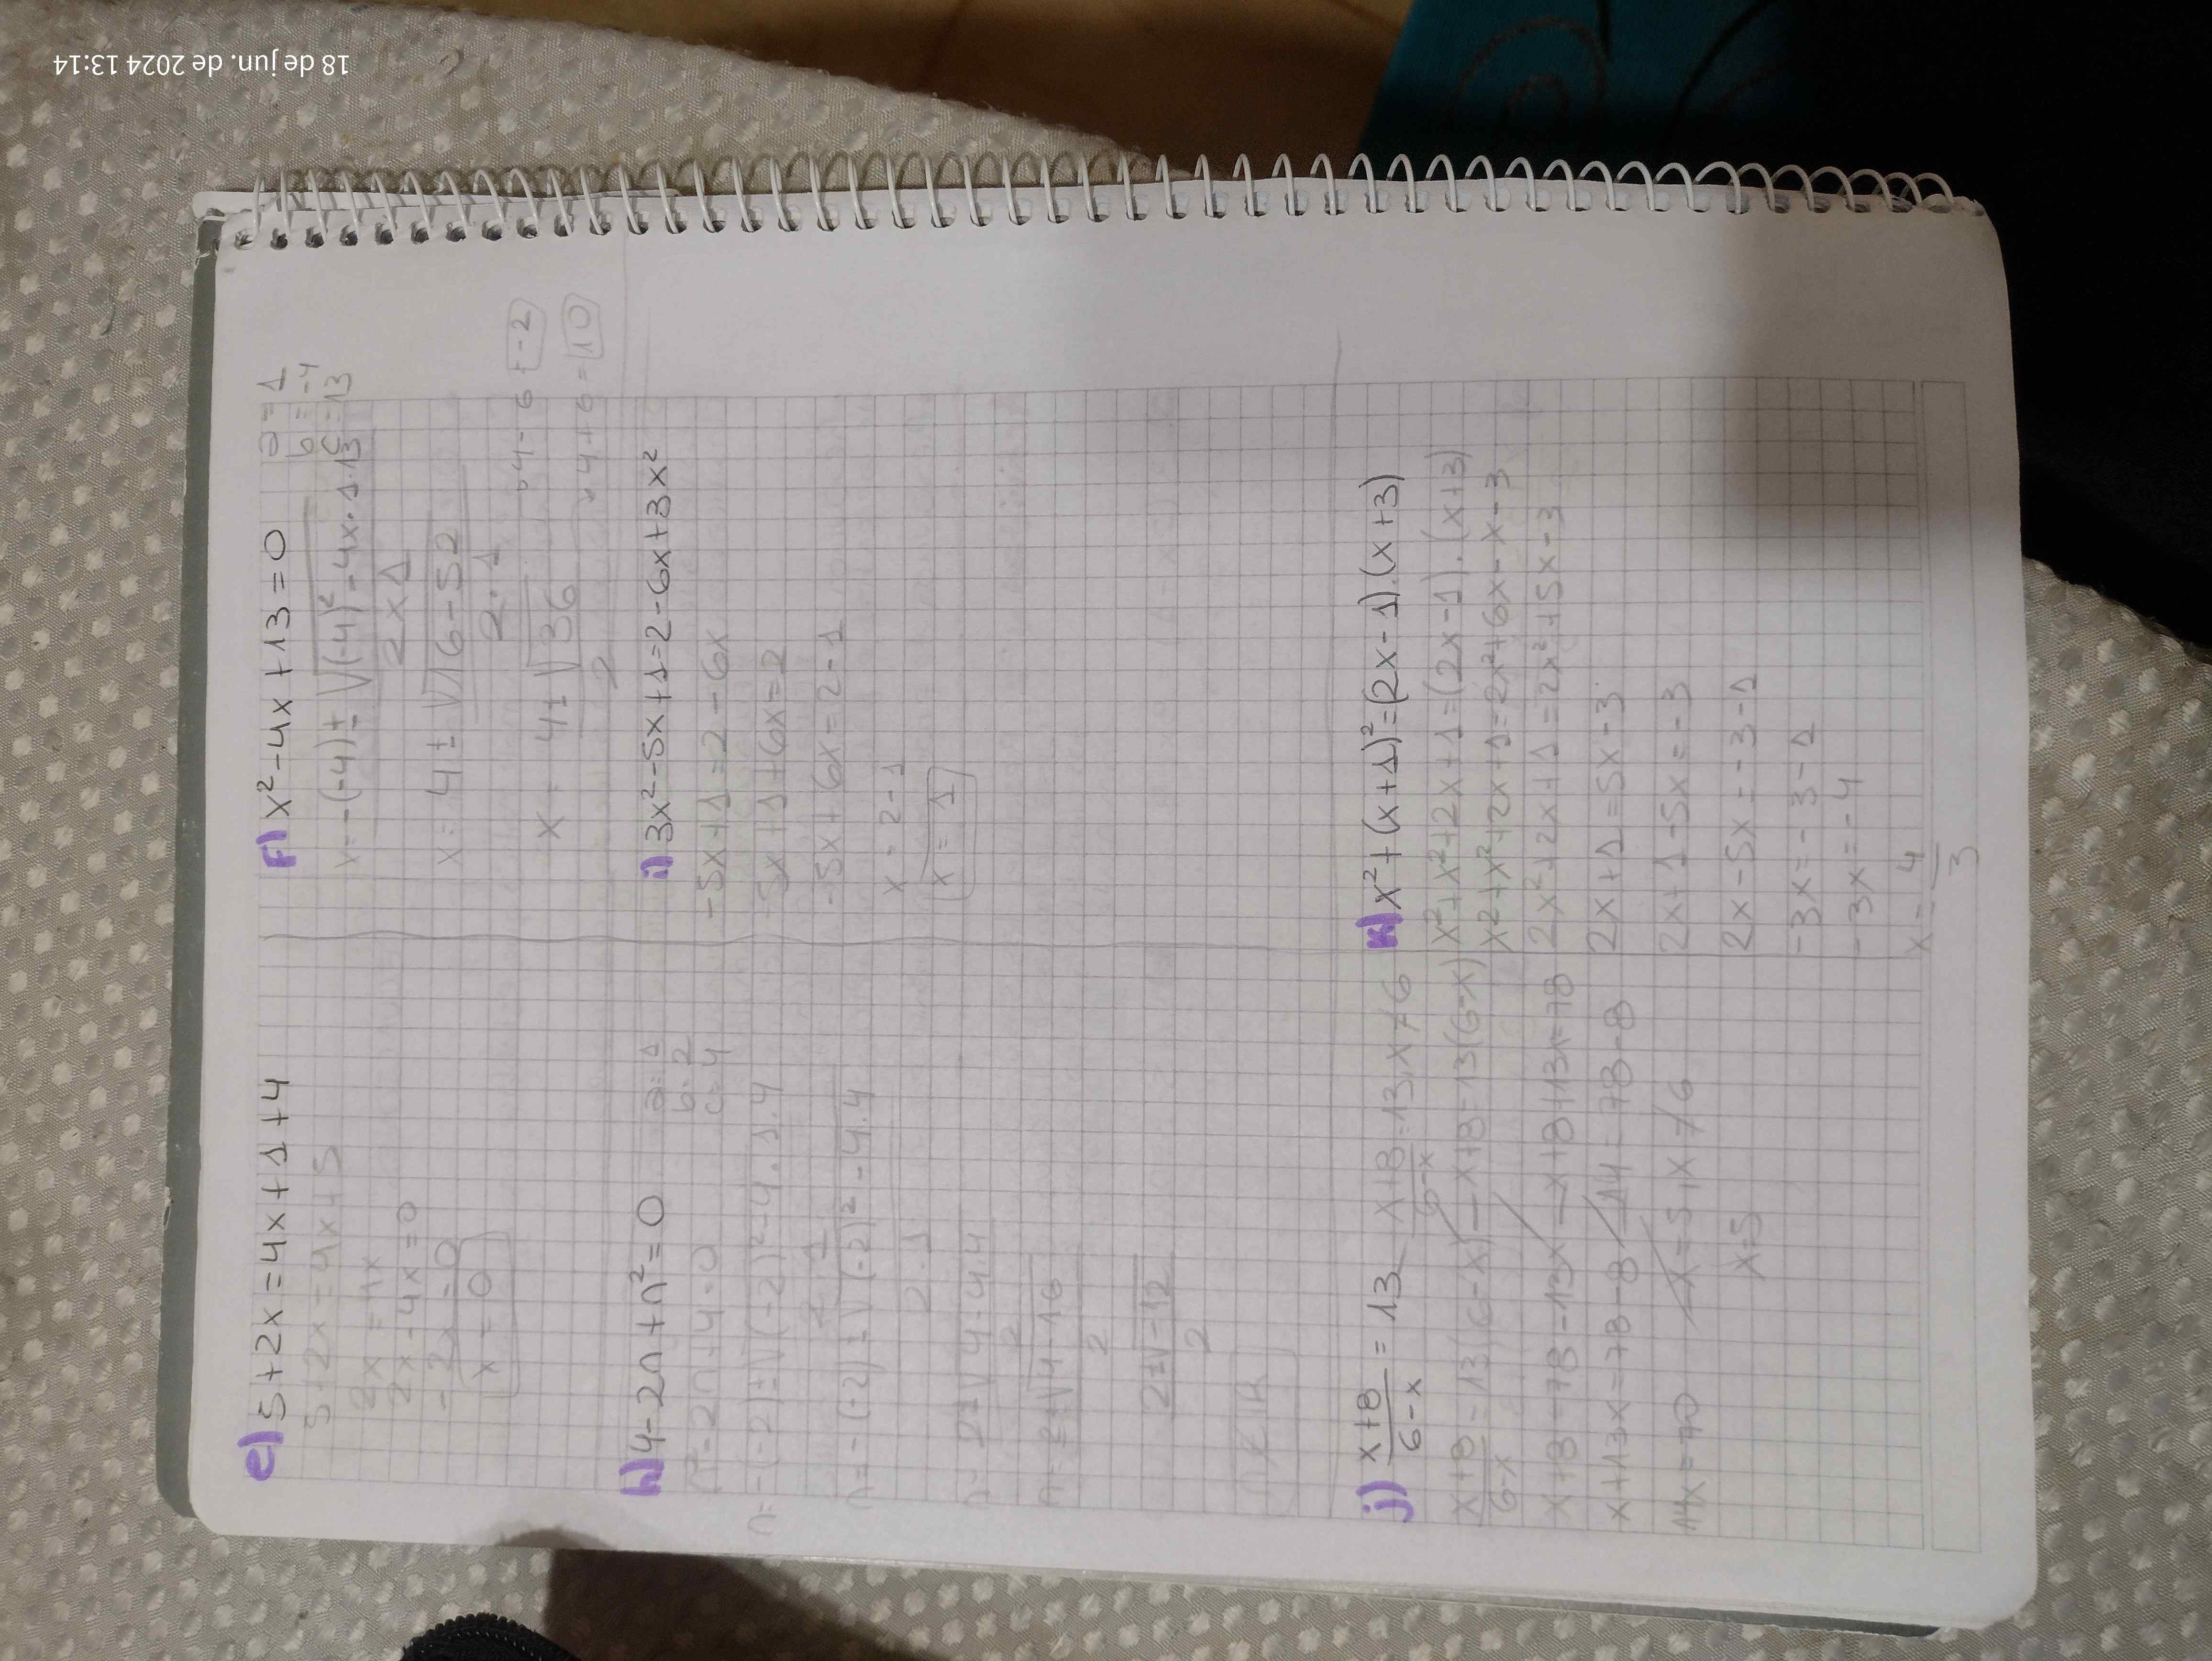 18 de jun. de 2024 13:14
e) 5+2x=4x+1+4
5+2x=4x+5
2x=4x
2x-4x=0
-2x=0
x=0
f) x²-4x+13=0
a=1
b=-4
c=13
x=-(-4)±√(-4)²-4x·1·13
2x1
x=4±√16-52
2·1
x=4±√36
2
4-6=-2
4+6=10
h) 4-2n+n²=0
a=1
b=2
c=4
n²-2n+4=0
n=-(-2)±√(-2)²-4.1.4
2·1
n=-(-2)±√(-2)²-4.4
2·1
n=2±√4-4.4
2
n=2±√4-16
2
2±√-12
2
i) 3x²-5x+1=2-6x+3x²
-5x+1=2-6x
-5x+1+6x=2
-5x+6x=2-1
x=2-1
x=1
j) x+8/6-x=13
x+8/6-x=13, x≠6
x+8/6-x=13(6-x)
x+8=13(6-x)
x+8=78-13x
x+8+13x=78
x+13x=78-8
14x=78-8
14x=70
x=5, x≠6
x=5
k) x²+(x+1)²=(2x-1).(x+3)
x²+x²+2x+1=(2x-1).(x+3)
x²+x²+2x+1=2x²+6x-x-3
2x²+2x+1=2x²+5x-3
2x+1=5x-3
2x+1-5x=-3
2x-5x=-3-1
-3x=-3-1
-3x=-4
x=4/3